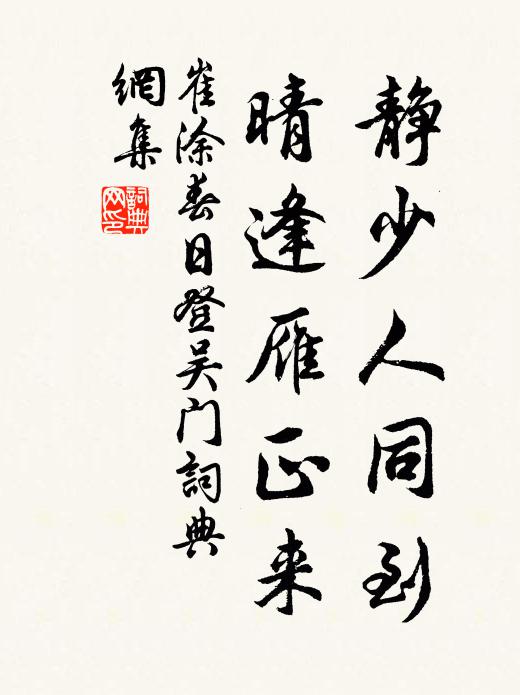 静少人同到
晴逢雁正来
崔涂春日登吴门詞典
網集
詞典
网印